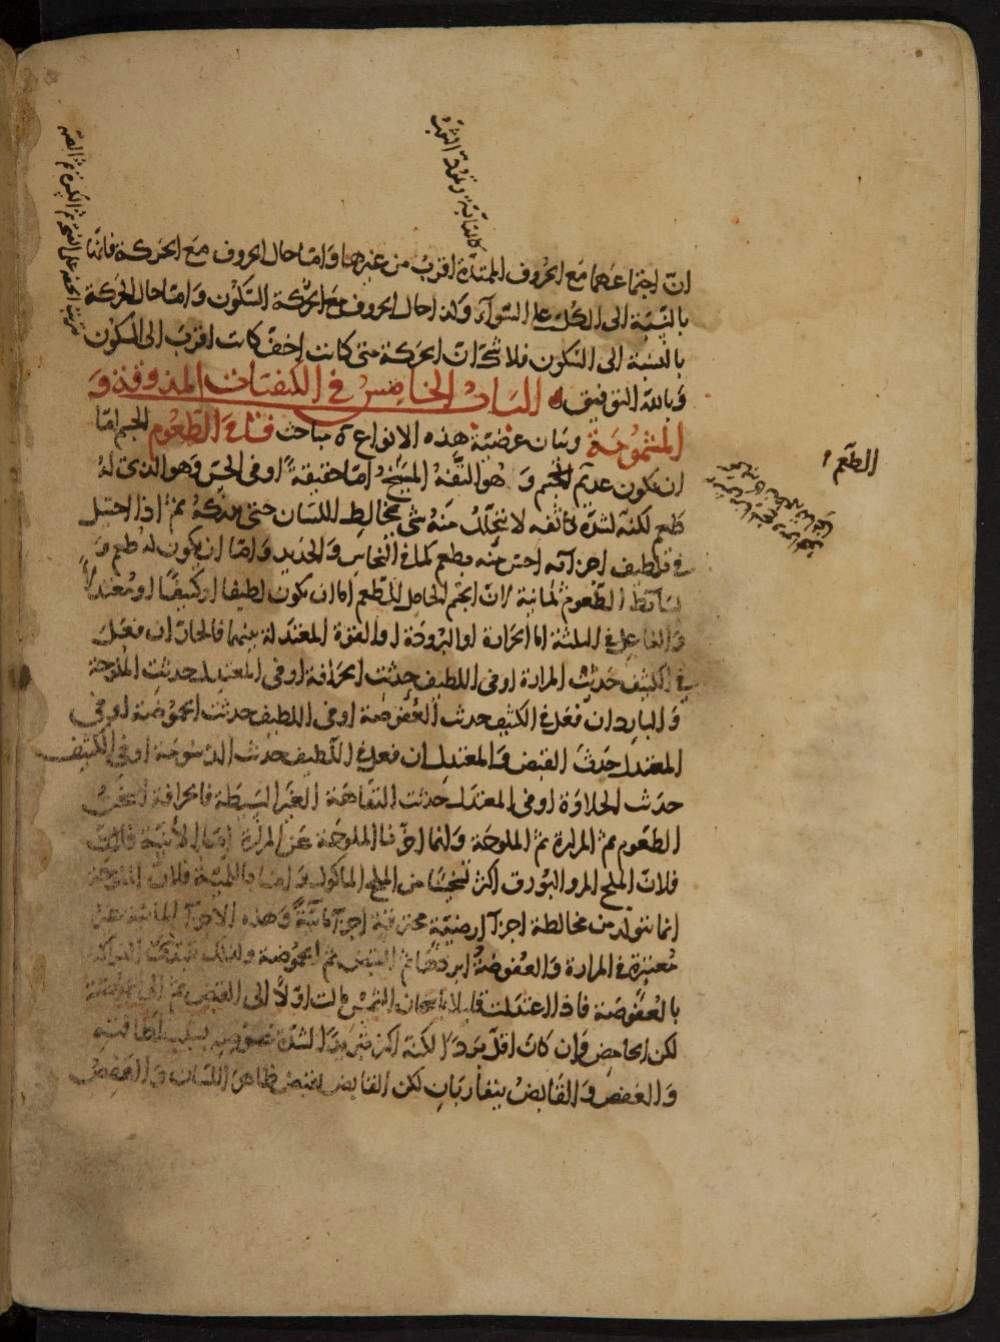 انّ اجتماعهما مَع الحُروف الممتدّة اقربُ من غيرها وَامّا حال الحروف مَع الحَركة فانّها
بالنّسبَة الى الكلّ على السّوآء وكذا حال الحروف مع الحركة السّكُون وَامّا حال الحَركة
بالنسبَة الى السّكون فلا شكّ انّ الحرَكة متى كانت اخفّ كانت اقرَبَ الى السّكوُن
وَبالله التوفيق البَابُ الخامِسُ في الكيفيّات المذوقة وَ
المشمُومَة وبيَان عرَضيّة هذه الانواع ه مباحث فى الطّعُوم الجسم امّا
ان يكون عديم الطعم وَ هُو التَّفِهُ المسيخ امّا حقيقَةً اَوفى الحسّ وَهو الذى لهُ
طَعم لكنّه لشدّة تكاثفه لا يتحلّلُ منهُ شى يخالِط اللسَان حتى يدركهُ ثمّ اذا احتيل
فى تلطيف اجزآئه احسّ منه بطعم كما فى النحاسِ وَالحَديد وَامّا ان يكون له طعم وَ
بسَائطُ الطّعُوم ثمانيَة لانّ الجسْم الحاملَ للطّعم امّا ان يكون لطيفا او كثيفًا او مُعتدلًا
وَالفاعل فى الثلثة امّا الحَرارة او البُرودَة او القوّة المعتَدلة بينهما فالحارّ ان فعَلَ
فى الكثيف حَدثت المرارة اوفى اللطيف حدثت الحرَافة اوفى المعتدل حدثت الملُوحة
وَالبارد ان فعَل فى الكثيف حدثت العُفُوصَة اوفى اللطيف حدثت الحمُوضَة اوفى
المعتدل حَدثَ القبض وَالمعتدل ان فعل فى اللّطيف حدثت الدّسُومَة اوفى الكثيف
حدَثت الحلاوَة اوفى المعتدَل حَدثت التفاهَة الغيرُ البَسيطَة فالحرافة اسخنُ
الطّعُوم ثمّ المرارة ثمّ الملوحَة وَانّما اخّرنا الملوحَة عَن المرارة امّا الأنّيّة فلانّ
فلانّ الملح المرّ والبَورق اكثر تسخينًا من الملح الماكول وَامّا اللّميّة فلانّ الملوحة
انما تتولّد من مخالطة اجزآ ارضيّة محترقة اجزآ مائيّةً وَهذه الاجزآ المائيّة غير
مُعتبرَة فى المرارة وَالعفُوصَةُ ابردهَا ثمّ القبض ثمّ الحمُوضَة ولذلك تبتدئ الفواكه
بالعُفُوصَة فاذا اعتدَلت قليلا باسخان الشمس مالت اوّلاً الى القبض ثمّ الى الحموضة
لكن الحامِض وَان كانَ اقلّ بَردًا لكنّه اكثر تبريدًا لشدّة غوصه بسبب لطافته
وَالعَفص وَالقَابضُ يتقاربَان لكن القابض يقبض ظاهرَ اللسَان وَالعَفِص
الطّعم